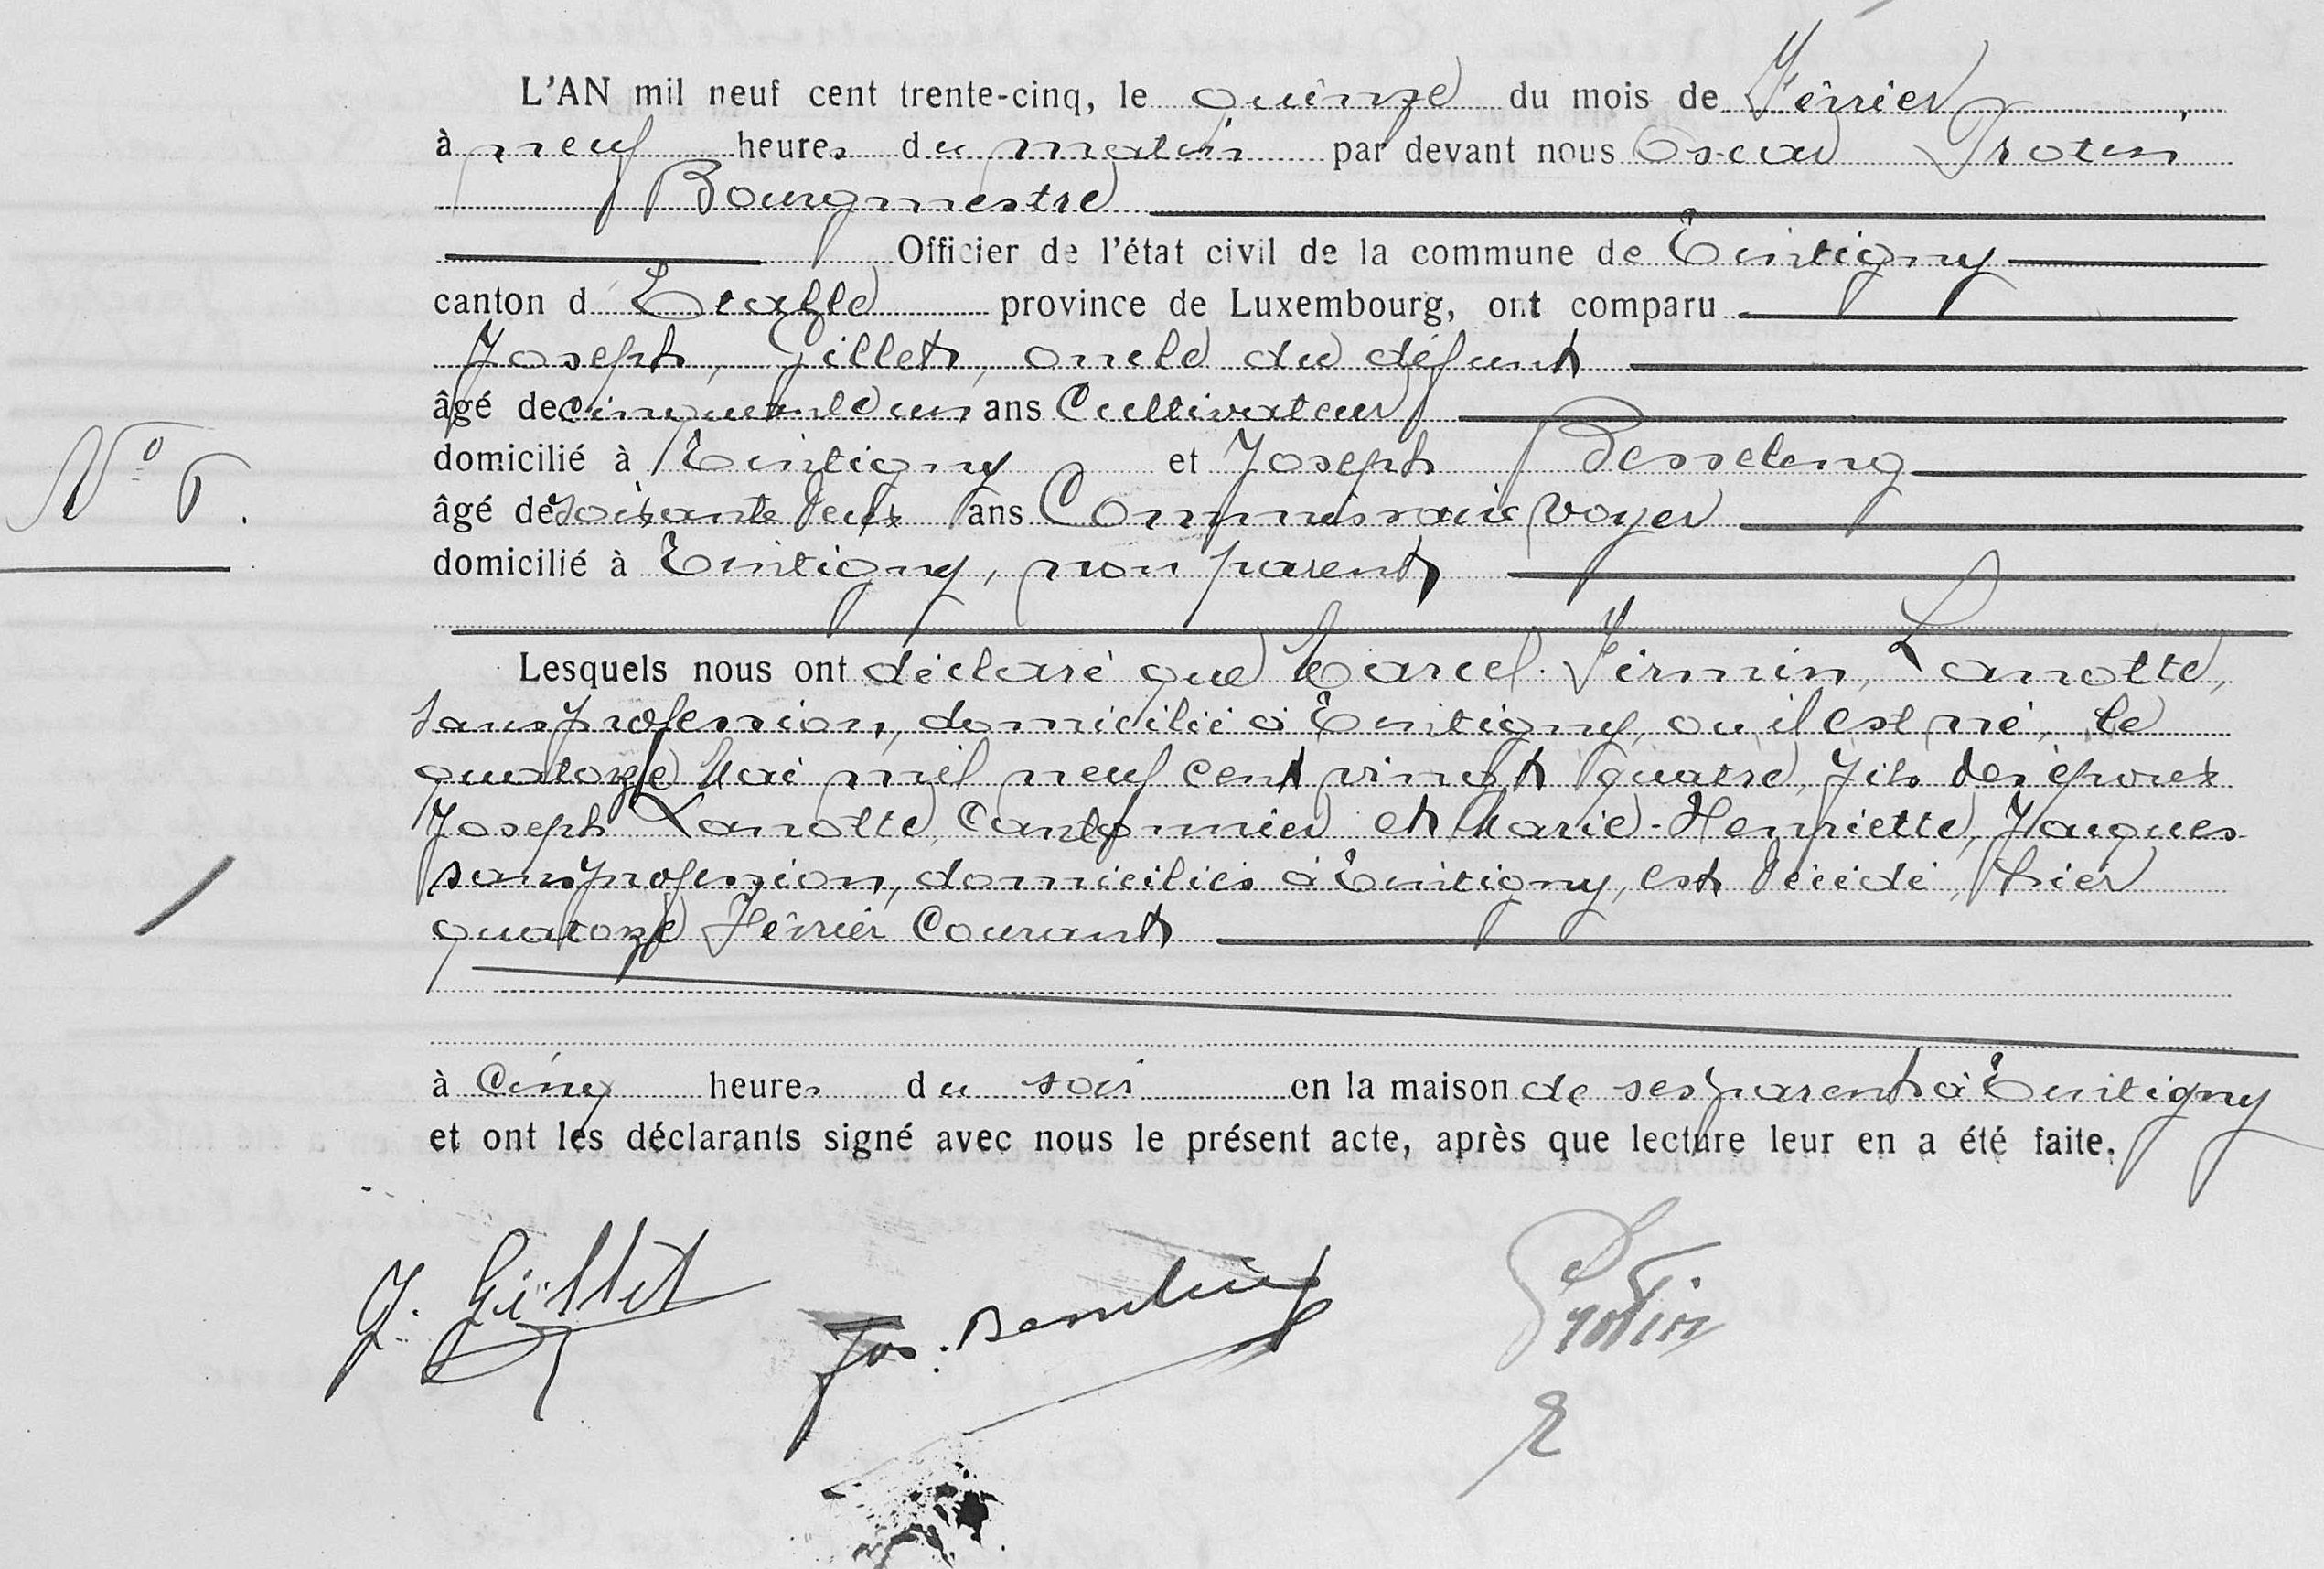 L'AN mil neuf cent trente-cinq, le quinze du mois de Février,
à neuf heures du matin par devant nous Oscar Protin
Bourgmestre
Officier de l'état civil de la commune de Tintigny
canton d'Etalle province de Luxembourg, ont comparu
Joseph, Gillet, oncle du défunt
âgé de cinquante un ans Cultivateur
domicilié à Tintigny et Joseph Besseling
âgé de soixante deux ans Commissaire voyer
domicilié à Tintigny, non parent
Lesquels nous ont déclaré que Marcel Firmin, Lanotte,
sans profession, domicilié à Tintigny, où il est né, le
quatorze Mai mil neuf cent vingt quatre, fils des époux
Joseph Lanotte Cantonnier et Marie-Henriette, Jacques
sans profession, domiciliés à Tintigny, est décédé, hier
quatorze Février courant
à Cinq heures du soir en la maison de ses parents à Tintigny
et ont les déclarants signé avec nous le présent acte, après que lecture leur en a été faite.
N°
J. Gillet
Jos. Besseling
Protin